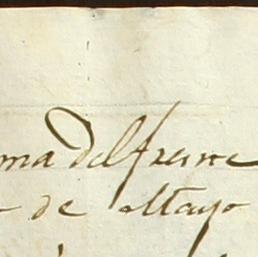 ma del fresne
de Mayo